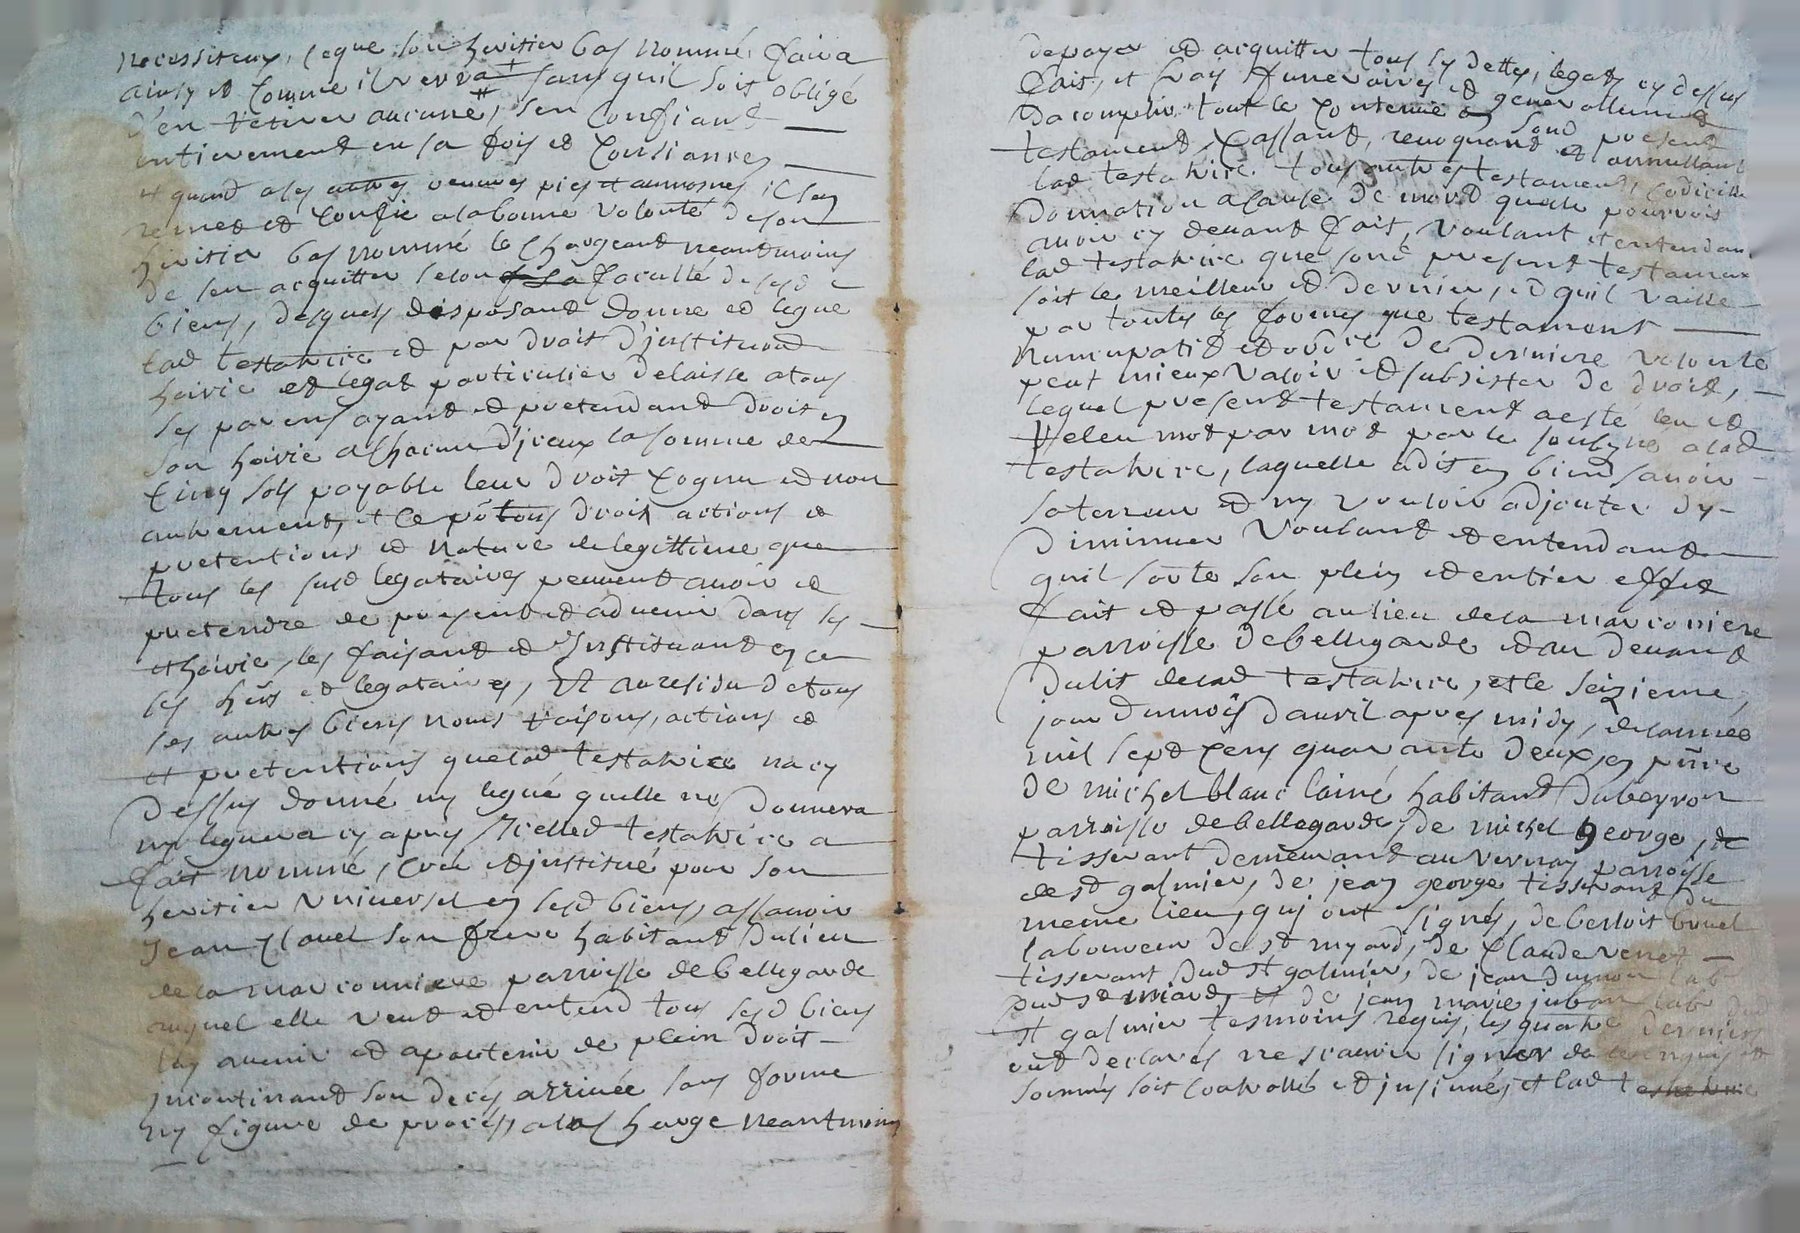 necessiteux, ce que son heritier bas nommé faira
ainsy et comme il verra + sans quil soit obligé
d'en retirer aucune #, s'en confiant
entierement en sa foy et consiance,
et quand a les autres oeuvres pies et aumosnes il s'en
remet et confie a la bonne volonté de son
heritier bas nommé le chargeant neantmoins
de s'en acquitter selon la faculté de sesd
biens, desquels disposant donne et legue
lad testatrice et par droit d'institution
hoirie et legat particulier delaisse a tous
ses parens ayant et pretendant droit en
son hoirie a chacun d'iceux la somme de
cinq sols payable leur droit cognu et non
autrement, et ce po tous droits actions et
pretentions et nature de legittime que
tous les susd legataires peuvent avoir et
pretendre de present et advenir dans sesd
et hoirie, les faisant et instituant en ce
ses hers et legataires, Et au residu de tous
ses autres biens noms raisons, actions et
et pretentions que lad testatrice n'a cy
dessus donné ny legué quelle ne donnera
ny leguera cy apres icelled testatrice a
fait nommé, creé et institué pour son
heritier universel en sesd biens, assavoir
Jean Clavel son frere habitant du lieu
de la marconniere parroisse de bellegarde
auquel elle veut et entend tous sesd biens
luy avenir et apartenir de plein droit
incontinant son decés arrivée sans forme
ny figure de procés, a la charge neantmoins
de payer et acquitter tous ses dettes, legats cy dessus
fait, et frais funeraires et generallement
d'acomplir tout le contenu en sond present
testament, cassant, revoquant et annullant
lad testatrice tous autres testament, codicille
donnation a cause de mort quelle pourroit
avoir cy devant fait, voulant et entendant
lad testatrice que sond present testament
soit le meilleur et dernier, et quil vaille
par toutes les formes que testament
nuncupatif et ordre de derniere volonté
peut mieux valoir et subsister de droit,
lequel present testament a esté leu et
releu mot par mot par le soubsigné a lad
testatrice, laquelle a dit en bien savoir
sa teneur et ny vouloir adjouter ny
diminuer voulant et entendant
quil sorte son plein et entier effet
fait et passé au lieu de la marconniere
parroisse de bellegarde et au devant
du lit de lad testatrice, et le seizieme,
jour du mois d'avril apres midy, de l'année
mil sept cens quarante deux, en pnce
de michel blanc l'ainé habitant du beyron
parroisse de bellegarde, de michel george,
tisserant demeurant au vernay parroisse
de st galmier, de jean george tisserant du
meme lieu, qui ont signés, de benoit
laboureur de st myard, de Claude
tisserant dud st galmier, de jean dumon lab
dud st miard, et de jean marie lab dud
st galmier tesmoins requis, les quatre derniers
ont declarés ne scavoir signer de ce enquis et
sommés soit controllé et insinué, et lad testatrice